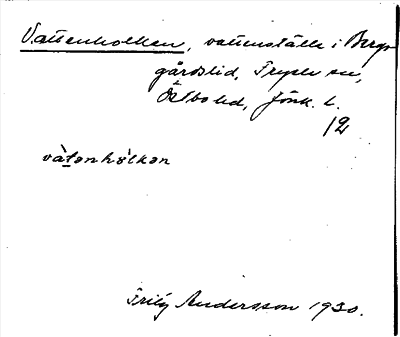 Vattenholken, vattenställe i Bergs-
gårdslid. Fryele sn,
Östbo hd, Jönk. l.
12
vàtənhòlkən
Frity Andersson 1930.